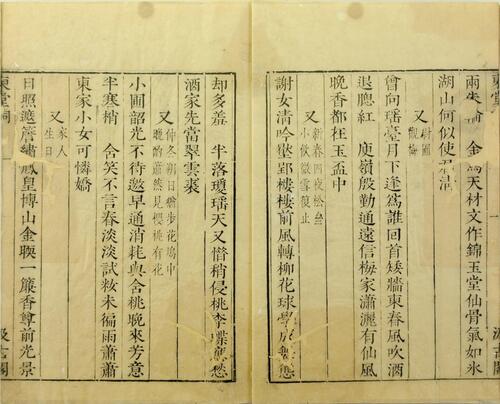 東堂
一
汲古閣
兩朱 金馬天材文作錦玉堂仙骨氣如氷
湖山何似使君清
又 尉園觀梅
曾向瑤臺月下逢為誰回首矮牆東春風吹酒
退腮紅 庾嶺殷勤通遠信梅家瀟灑有仙風
晚香都在玉盃中
又 新春四夜松小飲微雪復止
謝女清吟壓郢樓樓前風轉柳花毬學成舞態
却多羞 半落瓊瑤天又惜稍侵桃李蝶應愁
酒家先當翠雲裘
又 仲冬朔日獨步花塢中晚酌蕭然見櫻桃有花
小圃韶光不待邀早通消耗與含桃晚來芳意
半寒梢 含笑不言春淡淡試粧未徧雨蕭蕭
東家小女可憐嬌
又 家人生日
日照遮簷繡鳳皇博山金暖一簾香尊前光景
東堂詞
汲古閣